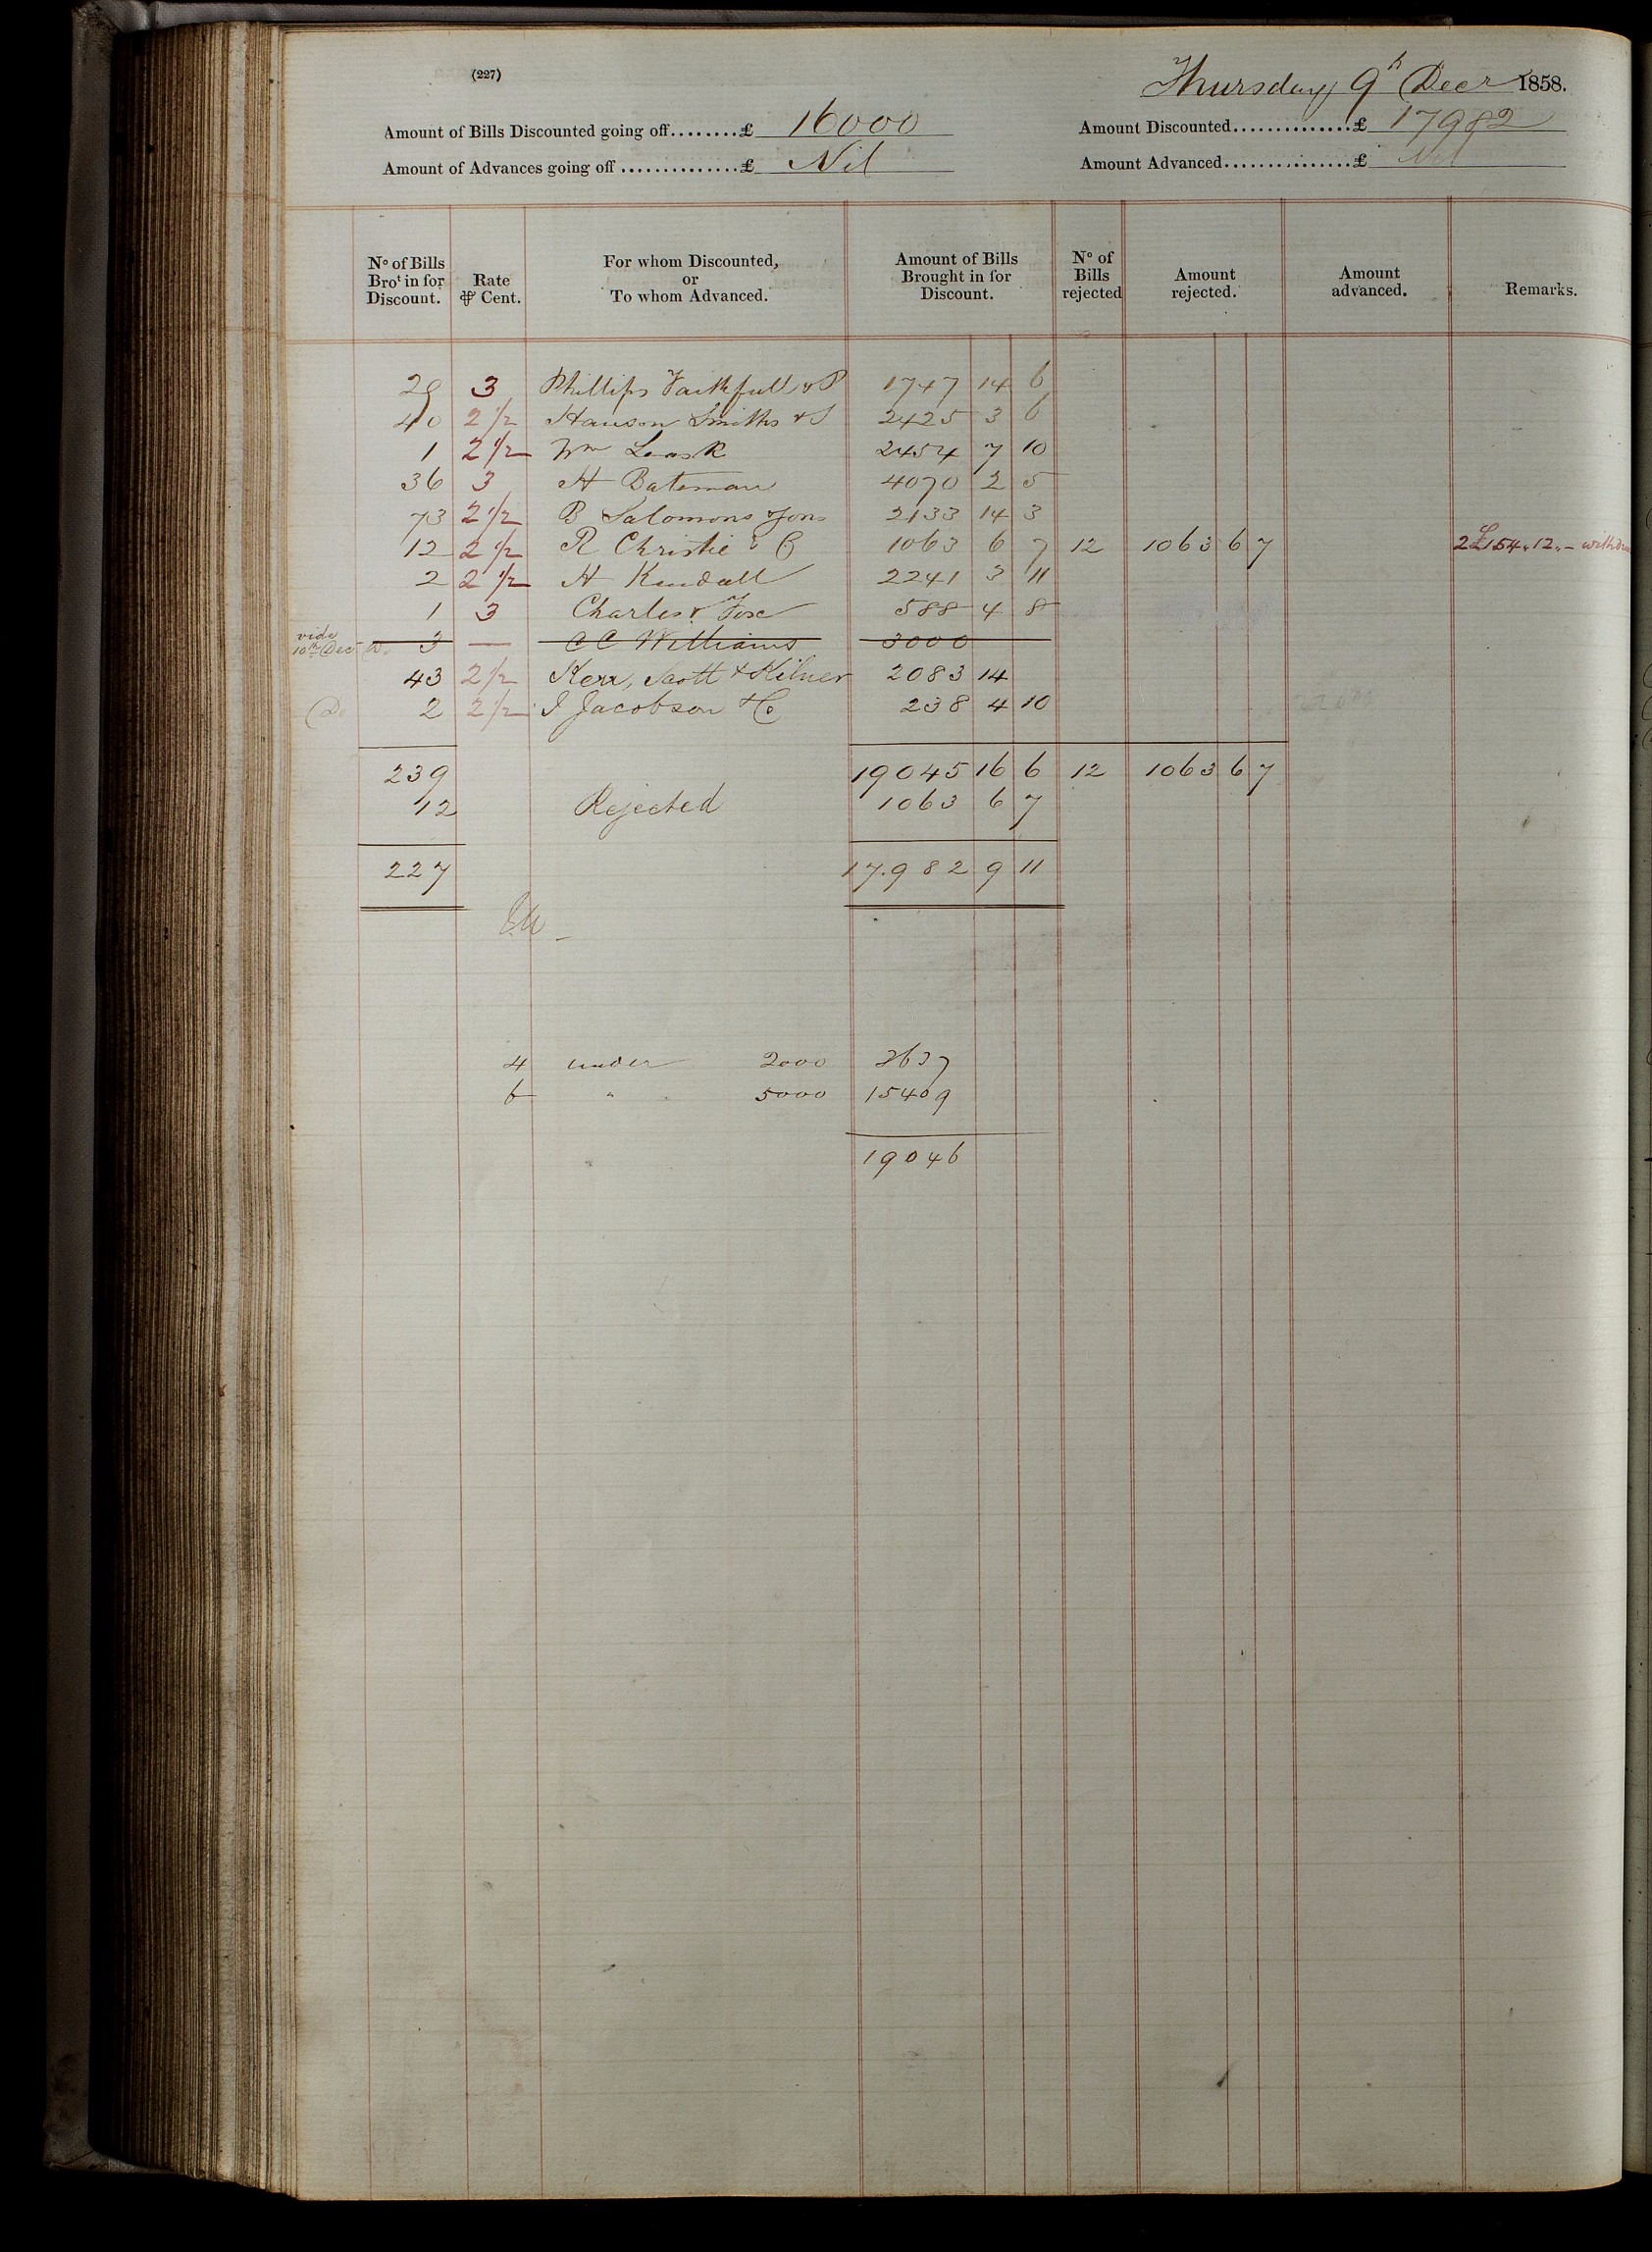 (227)
Thursday 9th Decr 1858.
Amount of Bills Discounted going off........£ 16000
Amount Discounted..............£ 17982
Amount of Advances going off ..............£ Nil
Amount Advanced...............£ Nil
No of Bills Brot in for Discount. Rate ⅌ Cent. For whom Discounted, or To whom Advanced. Amount of Bills Brought in for Discount. No of Bills rejected Amount rejected. Amount advanced. Remarks.
29 3 Phillips Faithfull & P 1747 14 6
40 2 1/2 Hanson Smiths & S 2425 3 6
1 2 1/2 Wm Leask 2454 7 10
36 3 H Bateman 4070 2 5
73 2 1/2 B Salomons & Sons 2133 14 3
12 2 1/2 R Christie & C 1063 6 7 12 1063 6 7 2 £154.12.- withdra
2 2 1/2 H Kendall 2241 3 11
1 3 Charles & Fox 588 4 8
vide 10th Dec Do 3 — C C Williams 3000
43 2 1/2 Kerr, Scott & Kilner 2083 14
Do 2 2 1/2 I Jacobson & Co 238 4 10
239 19045 16 6 12 1063 6 7
12 Rejected 1063 6 7
227 17.982 9 11
4 under 2000 3637
6 " 5000 15409
19046